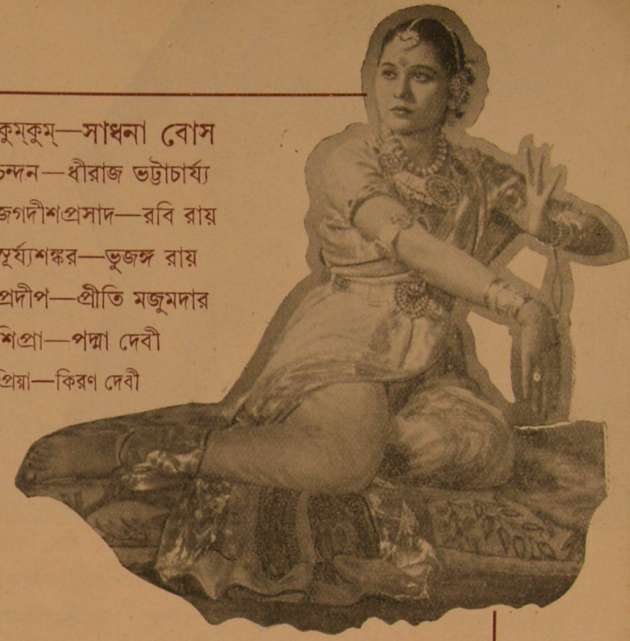 কুম্‌কুম্—সাধনা বোস
চন্দন—ধীরাজ ভট্টাচার্য্য
জগদীশপ্রসাদ—রবি রায়
সূর্য্যশঙ্কর—ভুজঙ্গ রায়
প্রদীপ—প্রীতি মজুমদার
শিপ্রা—পদ্মা দেবী
প্রিয়া—কিরণ দেবী